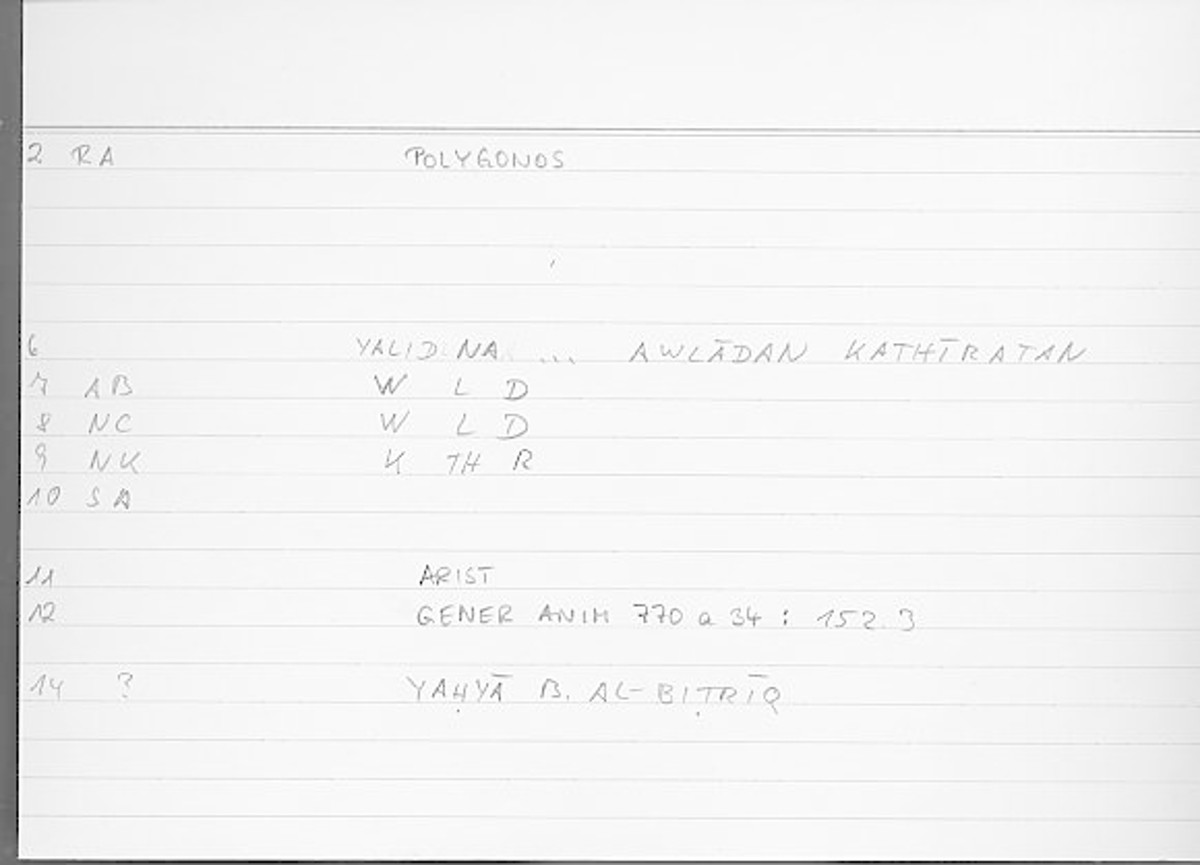 2 RA POLYGONOS
6 YALIDNA ... AWLĀDAN KATHĪRATAN
7 AB W L D
8 NC W L D
9 NK K TH R
10 SA
11 ARIST
12 GENER ANIM 770 a 34 : 152.3
14 ? YAḤYĀ B. AL-BIṬRĪQ